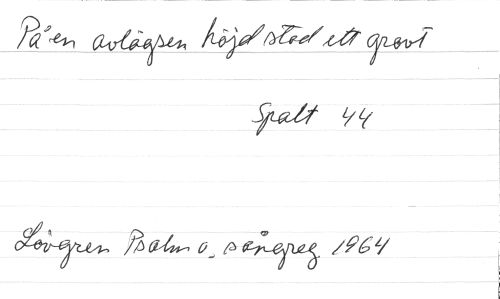 På en avlägsen höjd stod ett grovt
Spalt 44
Lövgren Psalm o. sångreg. 1964